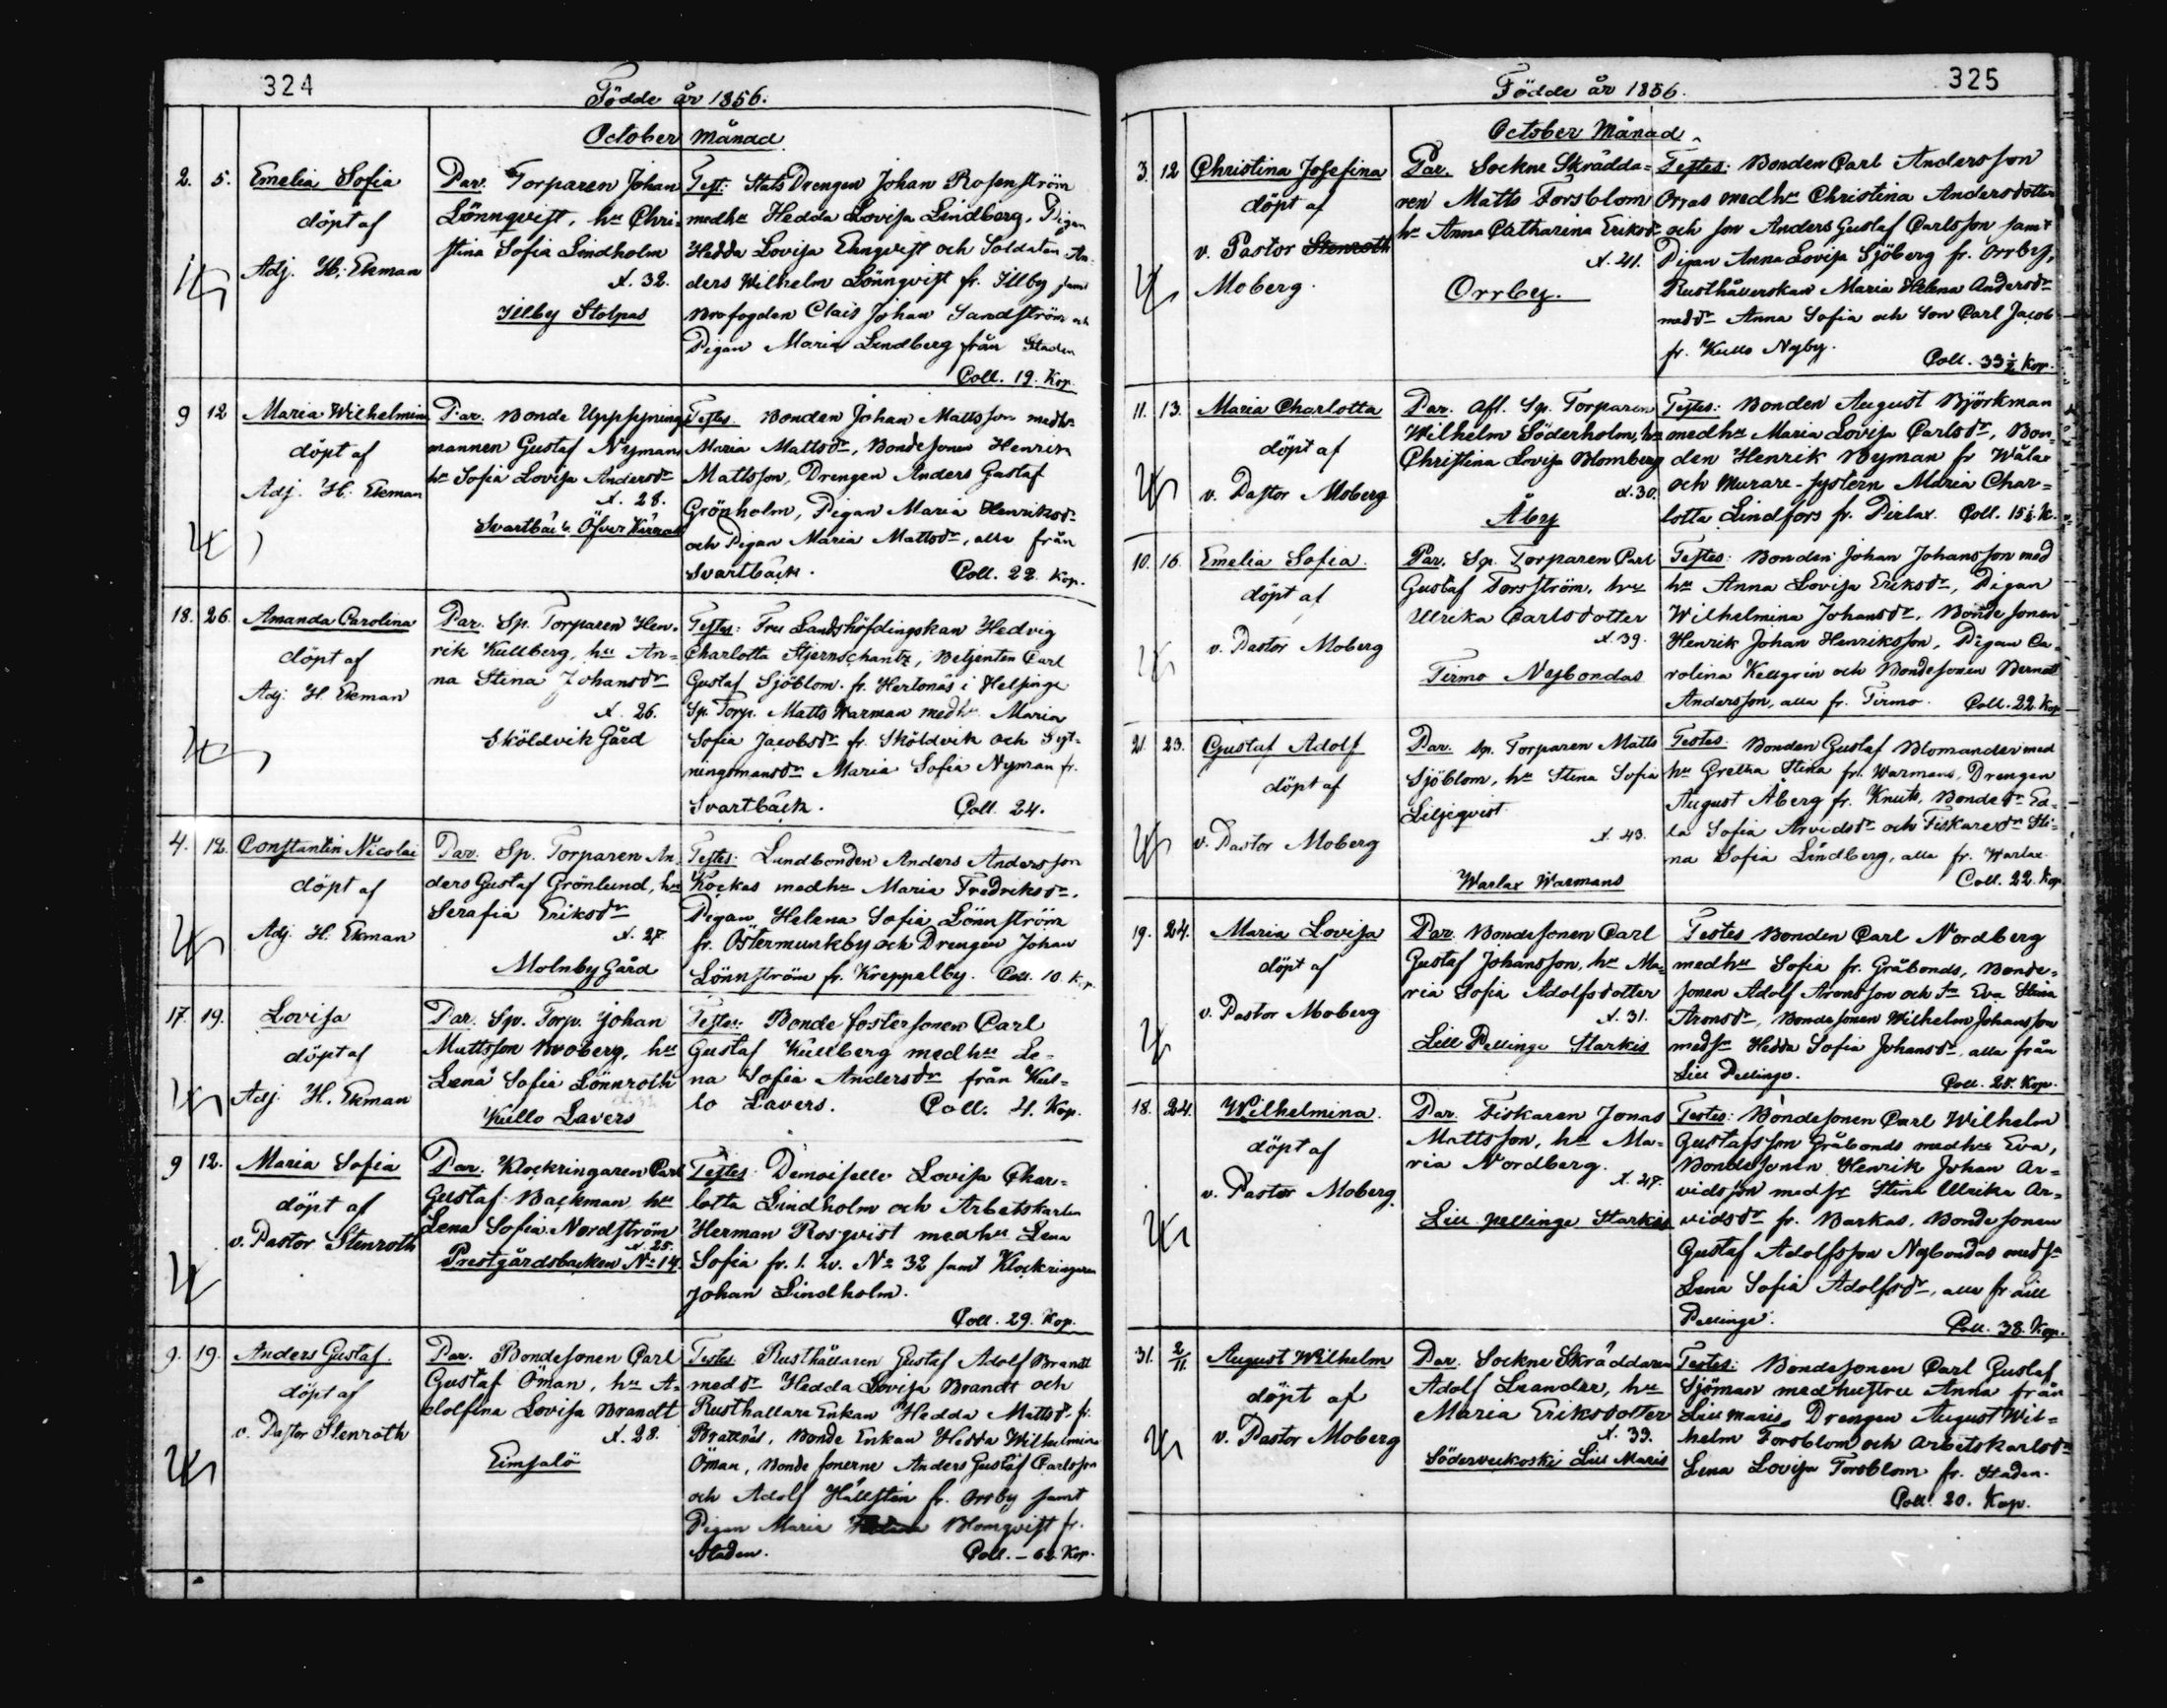 324
Födde år 1856.
October Månad
2. 5. Emelia Sofia
döpt af
Adj. H. Ekman
Par. Torparen Johan
Lönnqvist, hu Chri-
stina Sofia Lindholm
A. 32.
Illby Stolpas
Test: StatsDrengen Johan Rosenström
medhu Hedda Lovisa Lindberg, Pigan
Hedda Lovisa Engqvist och Soldaten An-
ders Wilhelm Lönnqvist fr. Illby samt
Brofogden Clais Johan Sandström och
Pigan Maria Lindberg från Staden
Coll. 19. Kop.
9 12 Maria Wilhelmina
döpt af
Adj. H. Ekman
Par. Bonde Uppsynings
mannen Gustaf Nyman
hu Sofia Lovisa Andersdr
A. 28.
Svartbäck Öfver
Testes. Bonden Johan Mattsson medhu
Maria Mattsdr, Bondesonen Henrik
Mattsson, Drengen Anders Gustaf
Grönholm, Pigan Maria Henriksdr
och Pigan Maria Mattsdr, alla från
Svartbäck. Coll. 22. Kop.
18. 26. Amanda Carolina
döpt af
Adj. H. Ekman
Par. Sp. Torparen Hen-
rik Kullberg, hu An-
na Stina Johansdr
A. 26.
Sköldvik Gård
Testes: Fru Landshöfdingskan Hedvig
Charlotta Stjernschantz, Betjenten Carl
Gustaf Sjöblom fr. Hertonäs i Helsinge
Sp. Torp. Matts Warman medhu Maria
Sofia Jacobsdr fr. Sköldvik och Syt-
ningsmansdr Maria Sofia Nyman fr.
Svartbäck. Coll. 24.
4. 12. Constantin Nicolai
döpt af
Adj. H. Ekman
Par. Sp. Torparen An-
ders Gustaf Grönlund, hu
Serafia Eriksdr
A. 27.
Molnby Gård
Testes: Lundbonden Anders Andersson
Kockas medhu Maria Fredriksdr,
Pigan Helena Sofia Lönnström
fr. Östermunkby och Drengen Johan
Lönnström fr. Kreppelby. Coll. 10. Kop.
17. 19. Lovisa
döpt af
Adj. H. Ekman
Par. Sp. Torp. Johan
Mattsson Broberg, hu
Lena Sofia Lönnroth
A. 32
Kullo Lavers
Testes: Bonde fostersonen Carl
Gustaf Kullberg medhu Le-
na Sofia Andersdr från Kul-
lo Lavers. Coll. 4. Kop.
9 12. Maria Sofia
döpt af
v. Pastor Stenroth
Par. Klockringaren Carl
Gustaf Backman, hu
Lena Sofia Nordström
A. 25.
Prestgårdsbacken No 14.
Testes: Demoiselle Lovisa Char-
lotta Lindholm och Arbetskarlen
Herman Rosqvist medhu Lena
Sofia fr. 1. qv. No 32 samt Klockringaren
Johan Lindholm.
Coll. 29. Kop.
9. 19. Anders Gustaf.
döpt af
v. Pastor Stenroth
Par. Bondesonen Carl
Gustaf Öman, hu A-
dolfina Lovisa Brandt
A. 28.
Eimsalö
Testes Rusthållaren Gustaf Adolf Brandt
meddr Hedda Lovisa Brandt och
Rusthållare Enkan Hedda Mattsdr fr.
Brattnäs, Bonde Enkan Hedda Wilhelmina
Öman, Bonde sonerne Anders Gustaf Carlsson
och Adolf Hällsten fr. Orrby samt
Pigan Maria Blomqvist fr.
Staden. Coll. - 62 Kop.
325
Födde år 1856.
October Månad
3. 12 Christina Josefina
döpt af
v. Pastor Stenroth
Moberg.
Par. Sockne Skrädda-
ren Matts Forsblom
hu Anna Catharina Eriksdr
A. 41.
Orrby.
Testes: Bonden Carl Andersson
Orras medhu Christina Andersdotter
och son Anders Gustaf Carlsson samt
Pigan Anna Lovisa Sjöberg fr. Orrby,
Rusthållerskan Maria Helena Andersdr
meddr Anna Sofia och Son Carl Jacob
fr. Kullo Nyby.
Coll. 33½ Kop.
11. 13. Maria Charlotta
döpt af
v. Pastor Moberg
Par. Afl. Sp. Torparen
Wilhelm Söderholm, hu
Christina Lovisa Blomberg
A. 30.
Åby
Testes: Bonden August Björkman
medhu Maria Lovisa Carlsdr, Bon-
den Henrik Nyman fr Wålax
och Murare-systern Maria Char-
lotta Lindfors fr. Pirlax. Coll. 15½ K.
10. 16. Emelia Sofia.
döpt af
v. Pastor Moberg
Par. Sp. Torparen Carl
Gustaf Forsström, hu
Ulrika Carlsdotter
A. 39.
Tirmo Nybondas
Testes: Bonden Johan Johansson med
hu Anna Lovisa Eriksdr, Pigan
Wilhelmina Johansdr, Bonde sonen
Henrik Johan Henriksson, Pigan Ca-
rolina Kellgrin och Bondesonen Berndt
Andersson, alla fr. Tirmo. Coll. 22. Kop
21. 23. Gustaf Adolf
döpt af
v. Pastor Moberg
Par. Sp. Torparen Matts
Sjöblom, hu Stina Sofia
Liljeqvist
A. 43.
Warlax Warmans
Testes: Bonden Gustaf Blomander med
hu Gretha Stina fr. Warmans, Drengen
August Åberg fr. Knuts, Bondedr Ed-
la Sofia Arvidsdr och Fiskaredr Sti-
na Sofia Lindberg, alla fr. Warlax.
Coll. 22. Kop.
19. 24. Maria Lovisa
döpt af
v. Pastor Moberg
Par. Bondesonen Carl
Gustaf Johansson, hu Ma-
ria Sofia Adolfsdotter
A. 31.
Lill Pellinge Starkis
Testes Bonden Carl Nordberg
medhu Sofia fr. Gråbonds, Bonde-
sonen Adolf Aronsson och Sr Eva Stina
Aronsdr, Bondesonen Wilhelm Johansson
medsr Hedda Sofia Johansdr, alla från
Lill Pellinge. Coll. 25. Kop.
18. 24. Wilhelmina.
döpt af
v. Pastor Moberg.
Par. Fiskaren Jonas
Mattsson, hu Ma-
ria Nordberg.
A. 27.
Lill pellinge Starkis
Testes: Bondesonen Carl Wilhelm
Gustafsson Gråbonds medhu Eva,
Bondesonen Henrik Johan Ar-
vidsson medsr Stina Ulrika Ar-
vidsdr fr. Barkas, Bondesonen
Gustaf Adolfsson Nybondas medsr
Lena Sofia Adolfsdr, alla fr Lill
Pellinge. Coll. 38. Kop.
31. 2/11. August Wilhelm
döpt af
v. Pastor Moberg
Par. Sockne Skräddaren
Adolf Leander, hu
Maria Eriksdotter
A. 39.
Söderveckoski Lill Maris
Testes: Bondesonen Carl Gustaf
Sjöman med hustru Anna från
Lill maris, Drengen August Wil-
helm Forsblom och Arbetskarlsdr
Lena Lovisa Forsblom fr. Staden.
Coll. 20. Kop.